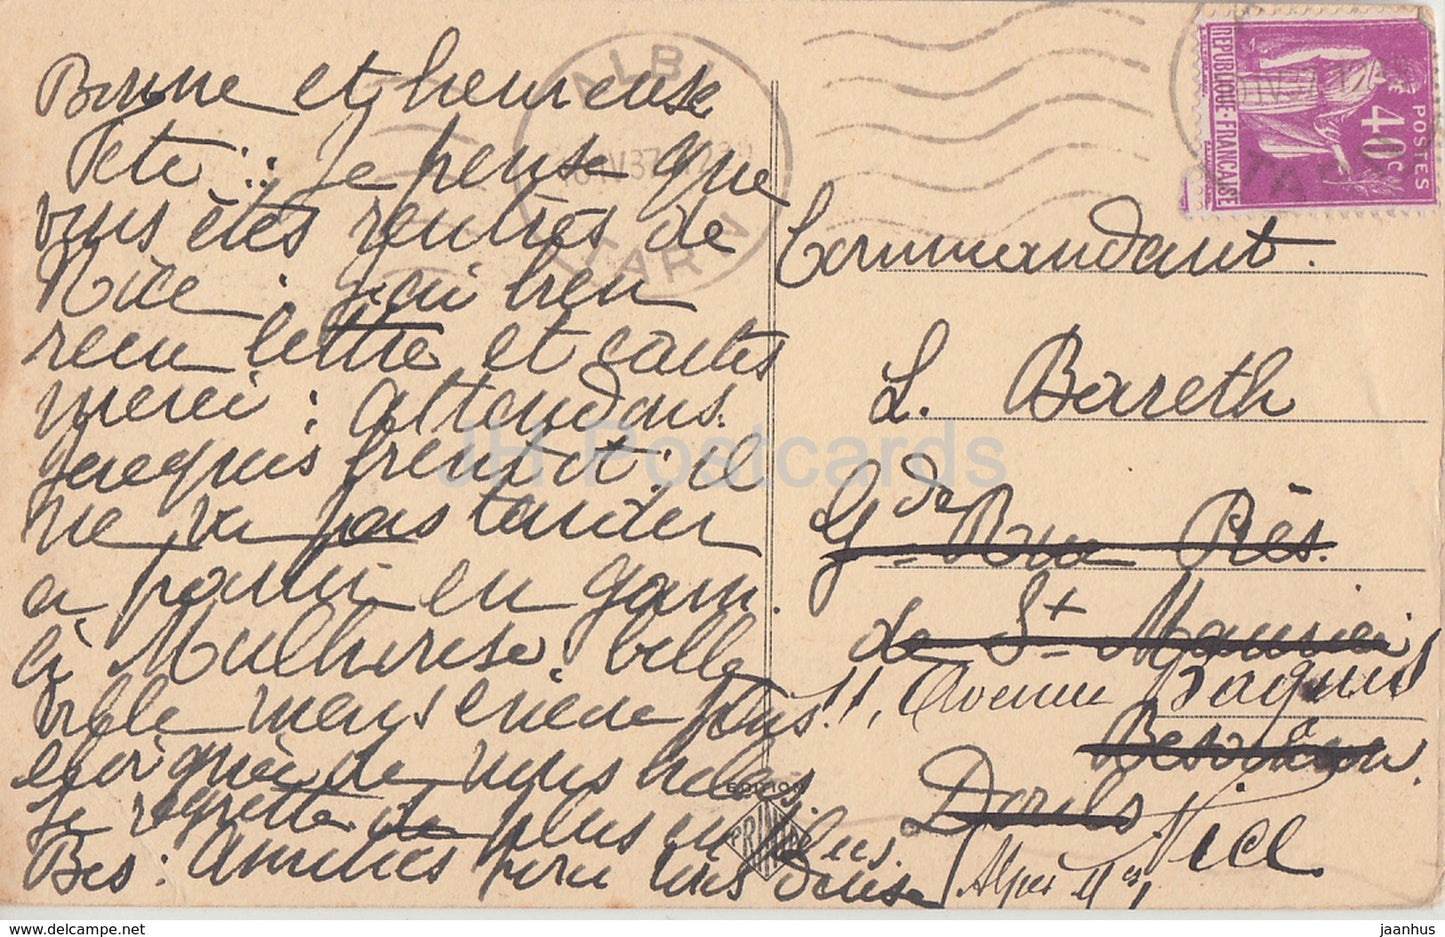 Bonne et heureuse
fete : Je pense que
vous êtes rentrés de
Nice : j'ai bien
recu lettre et cartes
merci : attendons.
Jacques bientôt : il
ne va pas tarder
a partir en garn.
à Mulhouse. belle
ville mais encore plus
eloignée de nous helas
je regrette de plus en plus.
Bes : amities pour tous deux
ALBI
IV 37
TARN
REPUBLIQUE · FRANCAISE
POSTES
40c
Commandant.
L. Bareth
Gde Rue Près.
de St Maurice
11, Avenue Baquis
Besançon.
Doubs
Nice
Alpes Mes
EDITION
PRIMA
JH Postcards
delcampe.net
jaanhus